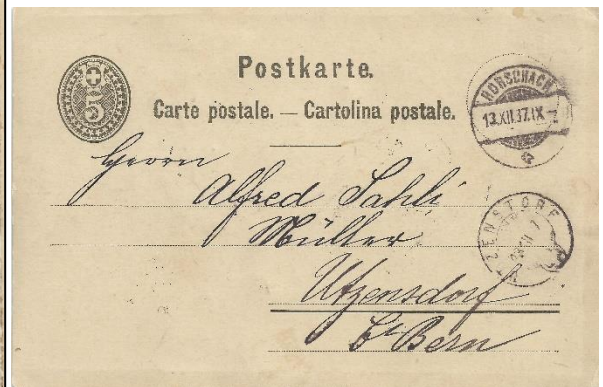 Postkarte.
5
Carte postale. — Cartolina postale.
RORSCHACH
13.XII.87.IX
Herrn
Alfred Sahli
Müller
Utzensdorf
Ct Bern
ZENSTORF